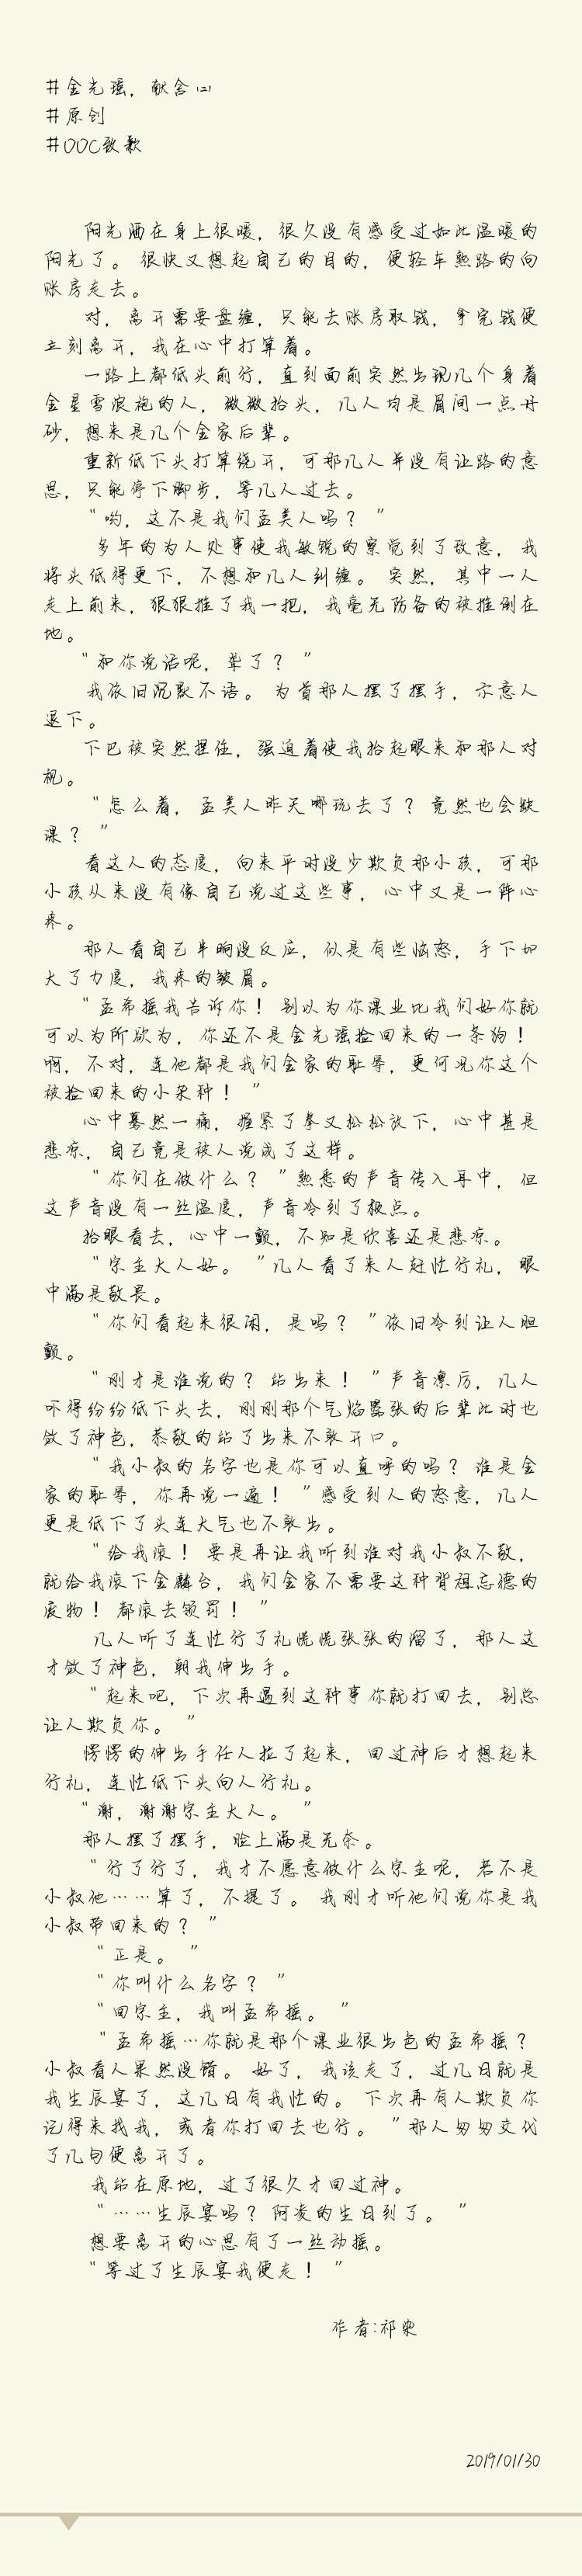 #金光瑶，献舍（二）
#原创
#OOC致歉
阳光洒在身上很暖，很久没有感受过如此温暖的
阳光了。很快又想起自己的目的，便轻车熟路的向
账房走去。
对，离开需要盘缠，只能去账房取钱，拿完钱便
立刻离开，我在心中打算着。
一路上都低头前行，直到面前突然出现几个身着
金星雪浪袍的人，微微抬头，几人均是眉间一点丹
砂，想来是几个金家后辈。
重新低下头打算绕开，可那几人并没有让路的意
思，只能停下脚步，等几人过去。
“哟，这不是我们孟美人吗？”
多年的为人处事使我敏锐的察觉到了敌意，我
将头低得更下，不想和几人纠缠。突然，其中一人
走上前来，狠狠推了我一把，我毫无防备的被推倒在
地。
“和你说话呢，聋了？”
我依旧沉默不语。为首那人摆了摆手，示意人
退下。
下巴被突然捏住，强迫着使我抬起眼来和那人对
视。
“怎么着，孟美人昨天哪玩去了？竟然也会缺
课？”
看这人的态度，向来平时没少欺负那小孩，可那
小孩从来没有像自己说过这些事，心中又是一阵心
疼。
那人看自己半晌没反应，似是有些恼怒，手下加
大了力度，我疼的皱眉。
“孟希摇我告诉你！别以为你课业比我们好你就
可以为所欲为，你还不是金光瑶捡回来的一条狗！
啊，不对，连他都是我们金家的耻辱，更何况你这个
被捡回来的小杂种！”
心中蓦然一痛，握紧了拳又松松放下，心中甚是
悲凉，自己竟是被人说成了这样。
“你们在做什么？”熟悉的声音传入耳中，但
这声音没有一丝温度，声音冷到了极点。
抬眼看去，心中一颤，不知是欣喜还是悲凉。
“宗主大人好。”几人看了来人赶忙行礼，眼
中满是敬畏。
“你们看起来很闲，是吗？”依旧冷到让人胆
颤。
“刚才是谁说的？站出来！”声音凛厉，几人
吓得纷纷低下头去，刚刚那个气焰嚣张的后辈此时也
敛了神色，恭敬的站了出来不敢开口。
“我小叔的名字也是你可以直呼的吗？谁是金
家的耻辱，你再说一遍！”感受到人的怒意，几人
更是低下了头连大气也不敢出。
“给我滚！要是再让我听到谁对我小叔不敬，
就给我滚下金麟台，我们金家不需要这种背祖忘德的
废物！都滚去领罚！”
几人听了连忙行了礼慌慌张张的溜了，那人这
才敛了神色，朝我伸出手。
“起来吧，下次再遇到这种事你就打回去，别总
让人欺负你。”
愣愣的伸出手任人拉了起来，回过神后才想起来
行礼，连忙低下头向人行礼。
“谢，谢谢宗主大人。”
那人摆了摆手，脸上满是无奈。
“行了行了，我才不愿意做什么宗主呢，若不是
小叔他……算了，不提了。我刚才听他们说你是我
小叔带回来的？”
“正是。”
“你叫什么名字？”
“回宗主，我叫孟希摇。”
“孟希摇…你就是那个课业很出色的孟希摇？
小叔看人果然没错。好了，我该走了，过几日就是
我生辰宴了，这几日有我忙的。下次再有人欺负你
记得来找我，或者你打回去也行。”那人匆匆交代
了几句便离开了。
我站在原地，过了很久才回过神。
“……生辰宴吗？阿凌的生日到了。”
想要离开的心思有了一丝动摇。
“等过了生辰宴我便走！”
作者：祁染
2019/01/30